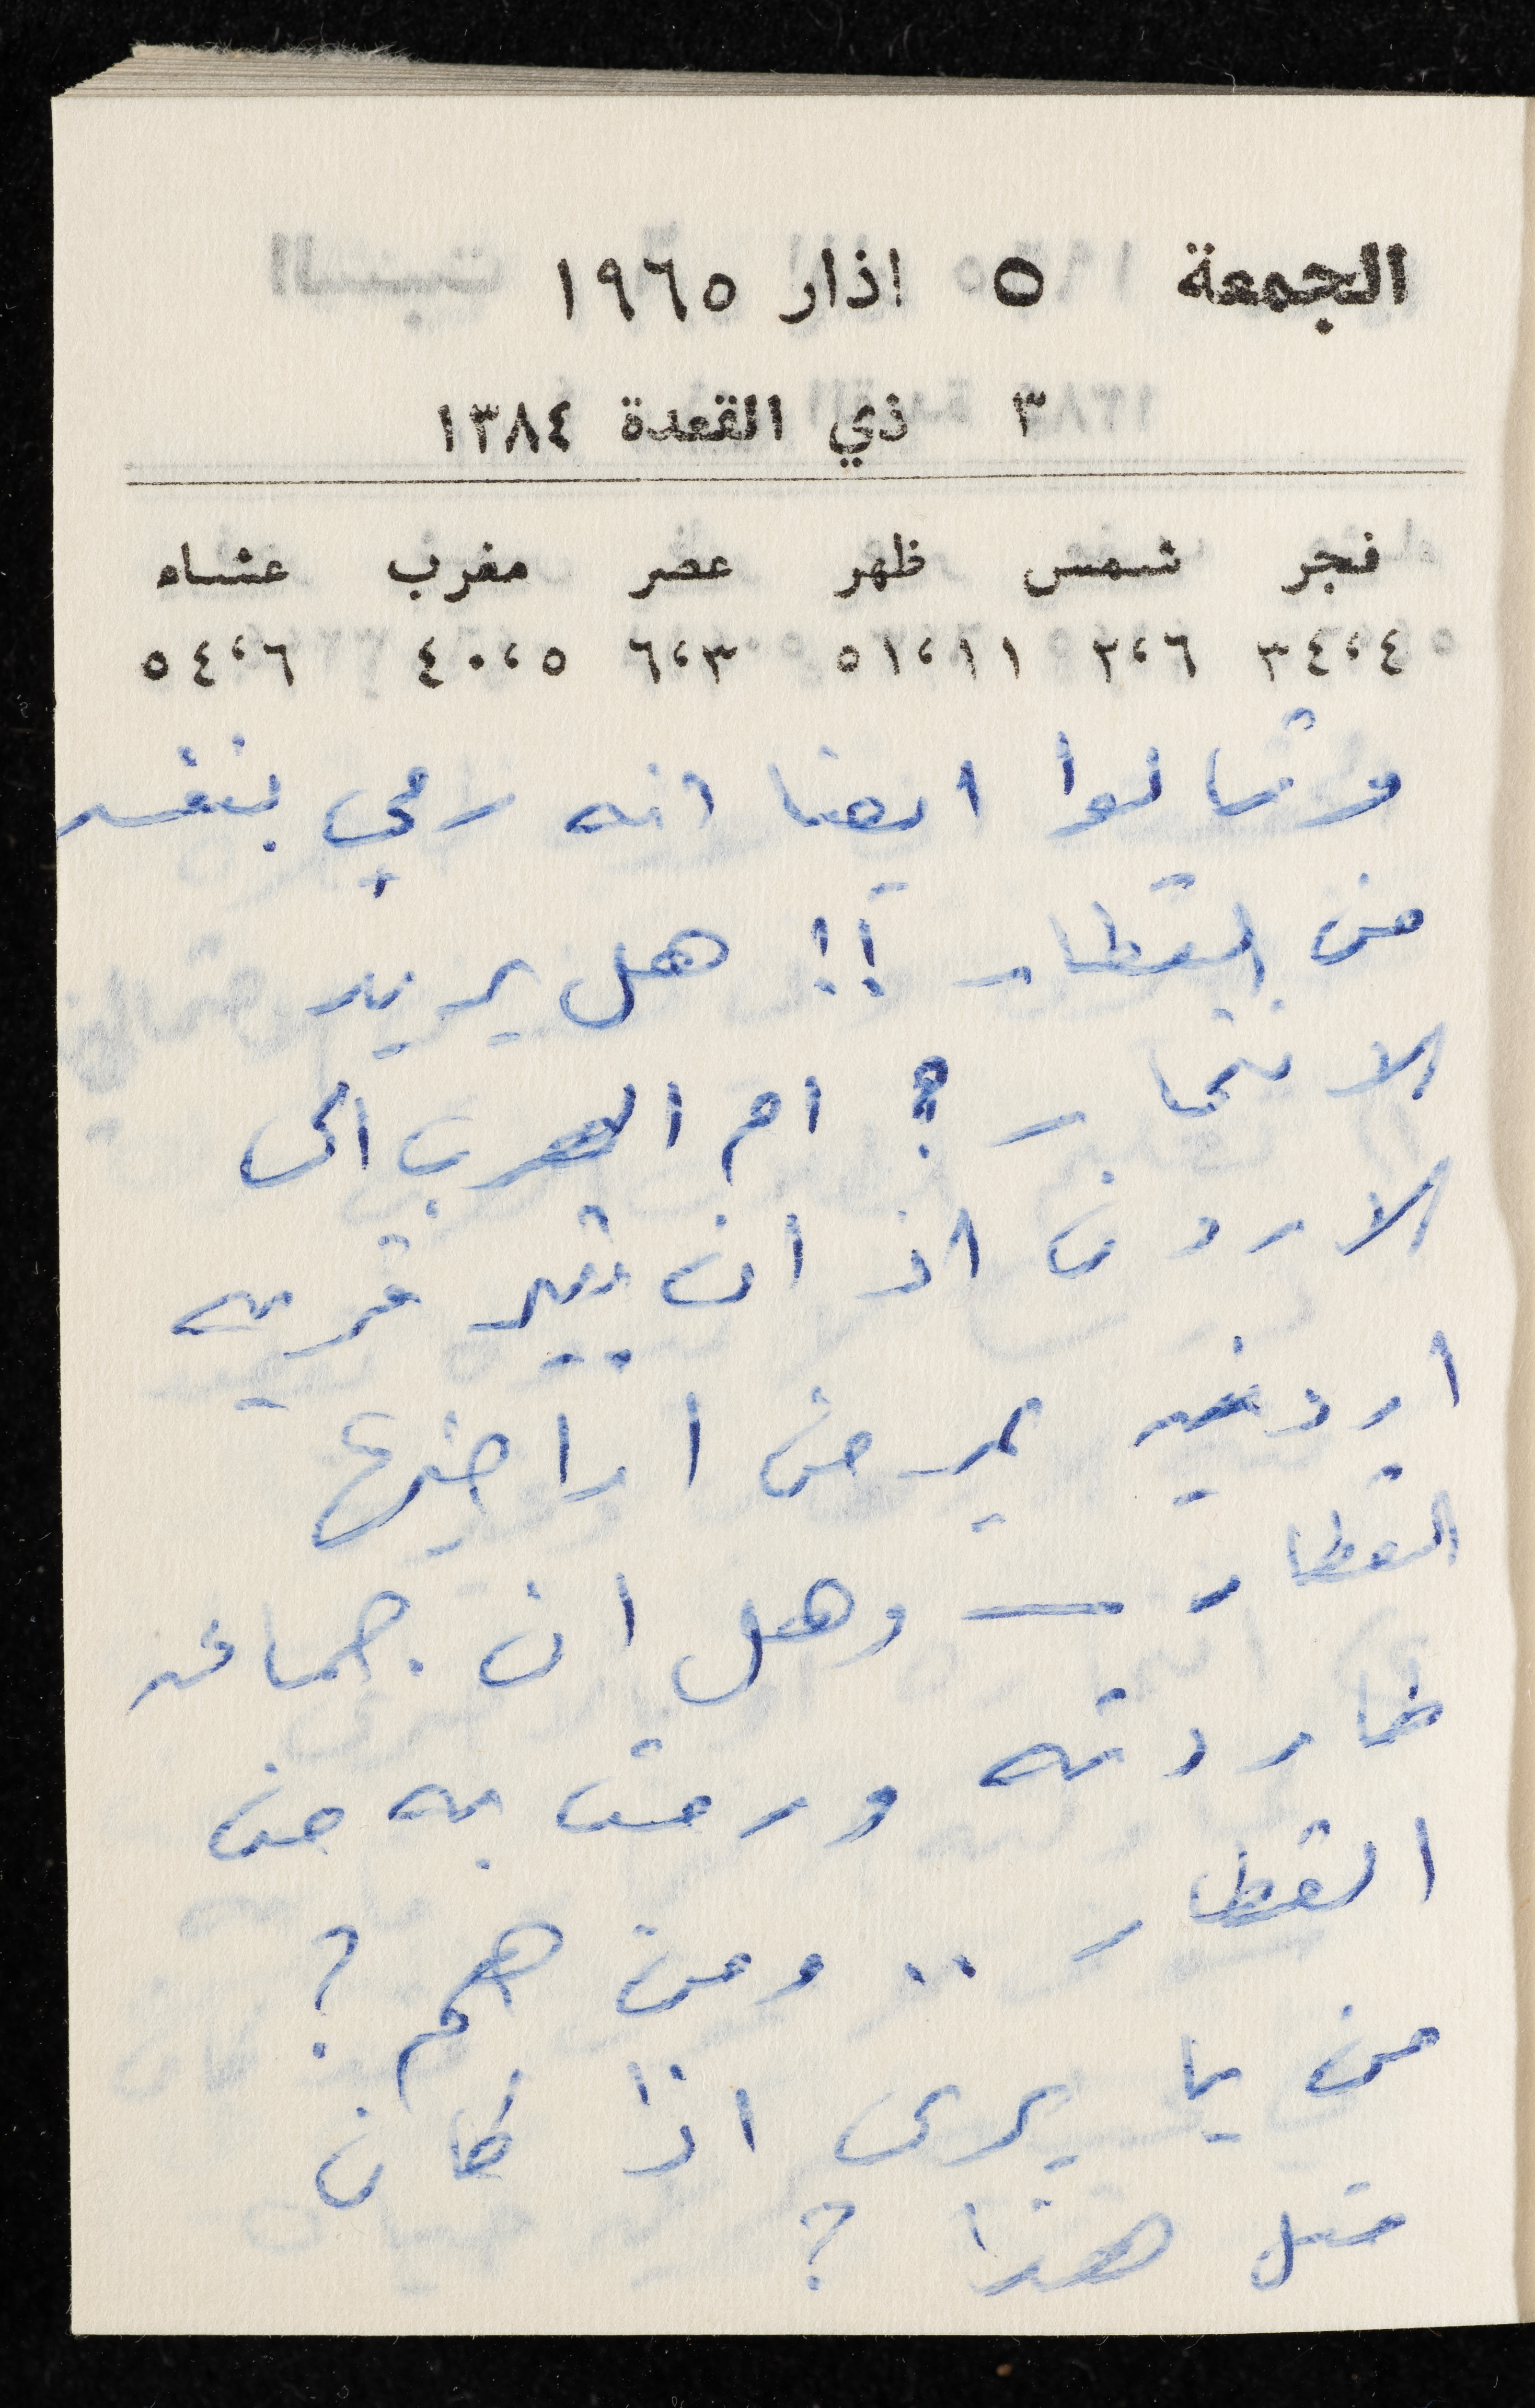 الجمعة ٥ اذار ١٩٦٥
٣ ذي القعدة ١٣٨٤
فجر شمس ظهر عصر مغرب عشاء
٣٤،٤ ٢،٦ ٥١،١١ ٦،٣ ٤٠،٥ ٥٤،٦
وقالوا ايضا انه رمي بنفسه
من القطار !! هل يريد
الانتحار ? ام الهرب الى
الاردن اذ ان قرية
اردنية يمر من اراضيها
القطار — وهل ان جماعه
طاردته ورمت به من
القطار .. ومن هم ?
من يا يرى اذا كان
مثل هذا ?